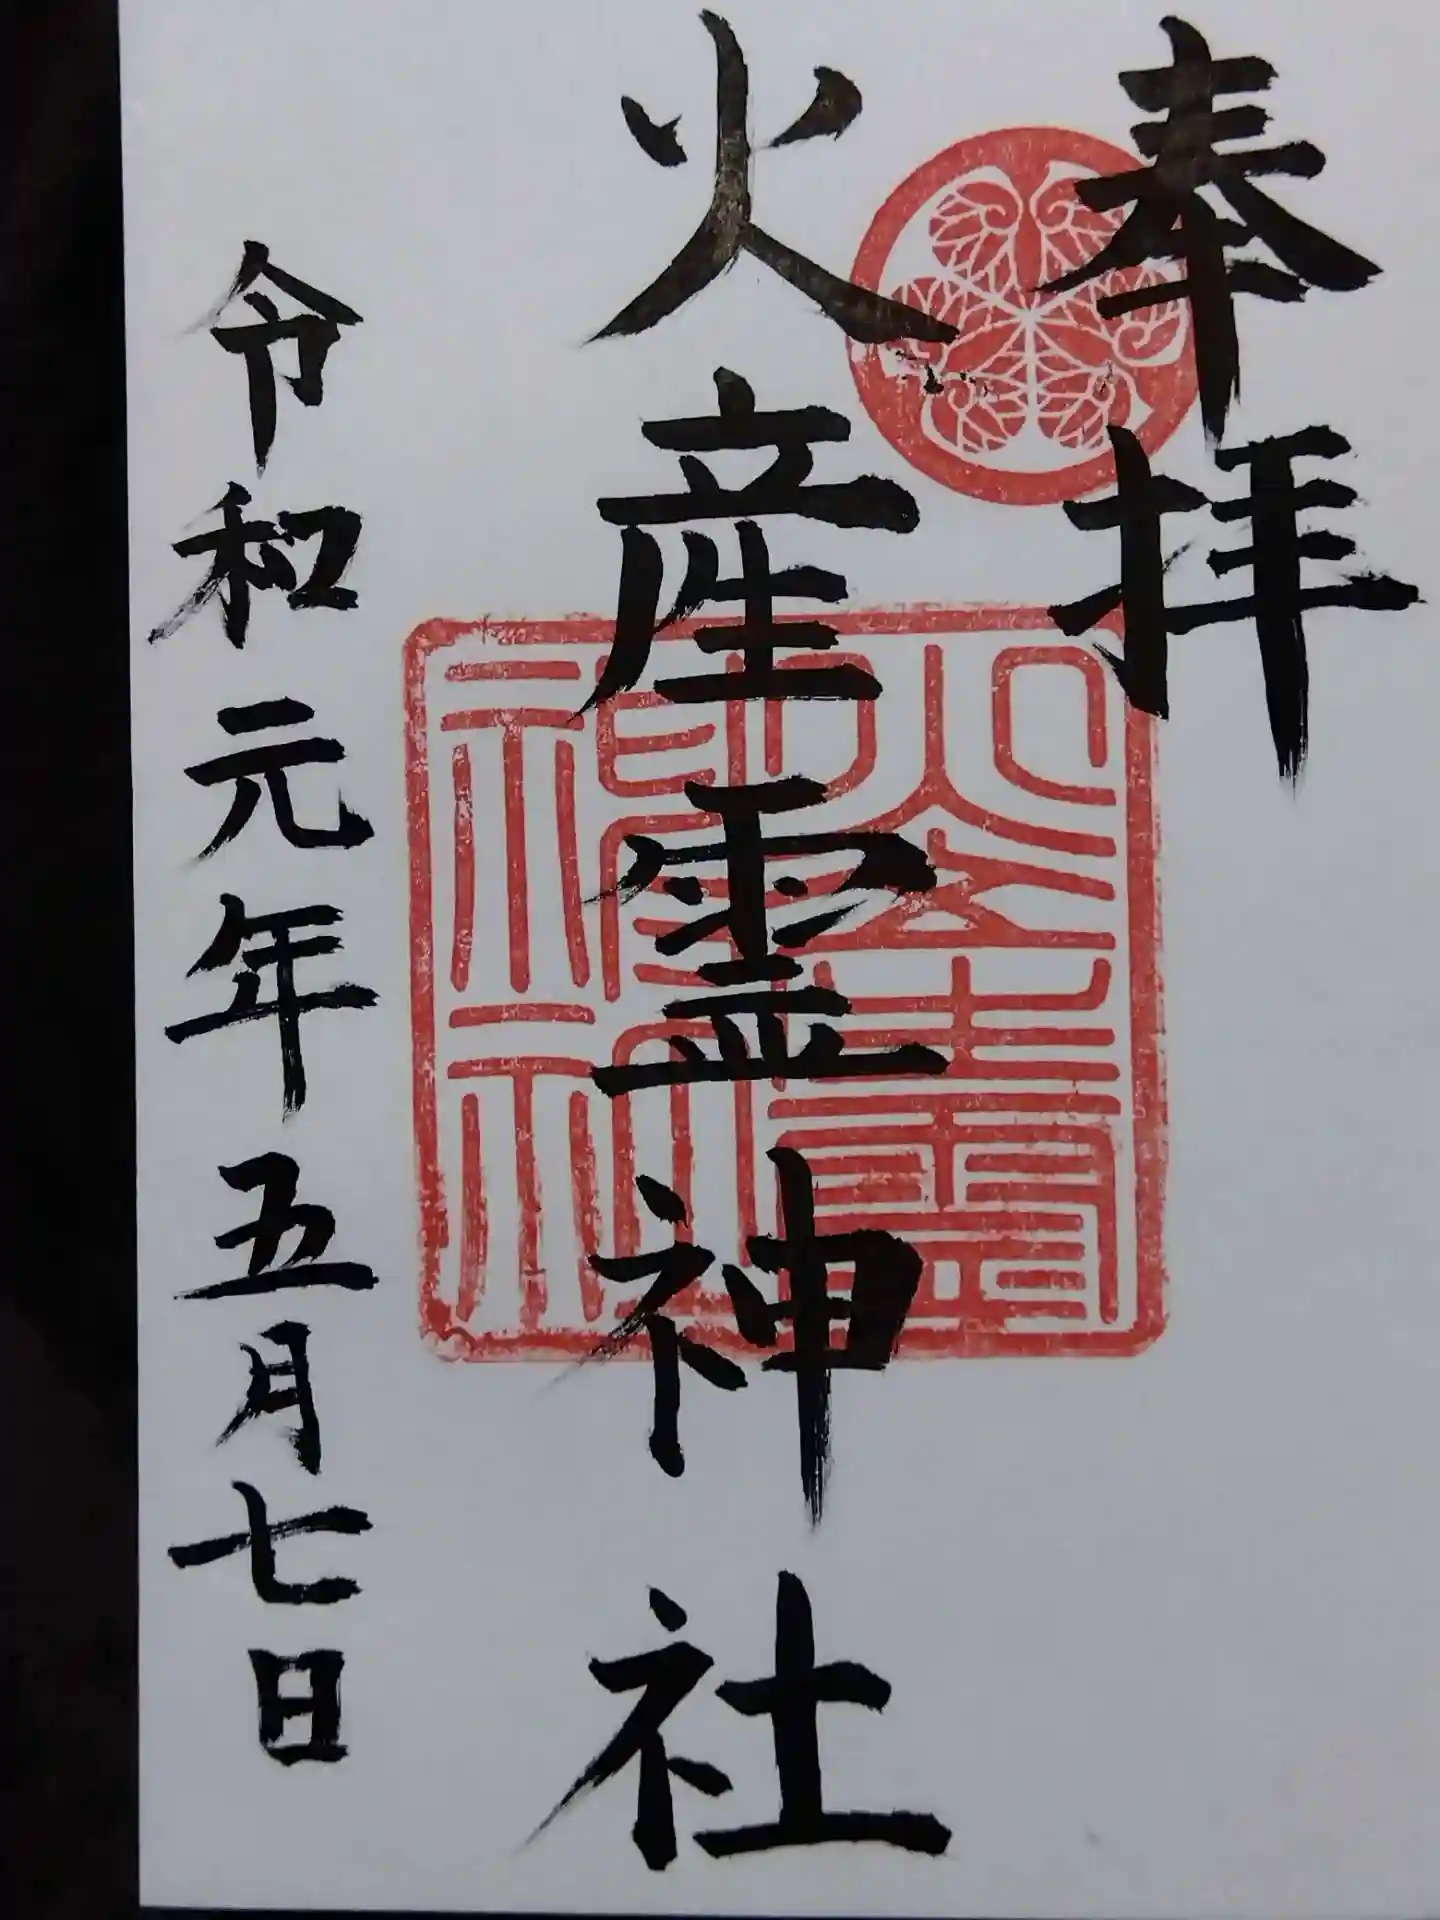 奉拝
火産霊神社
火産霊神社
令和元年五月七日